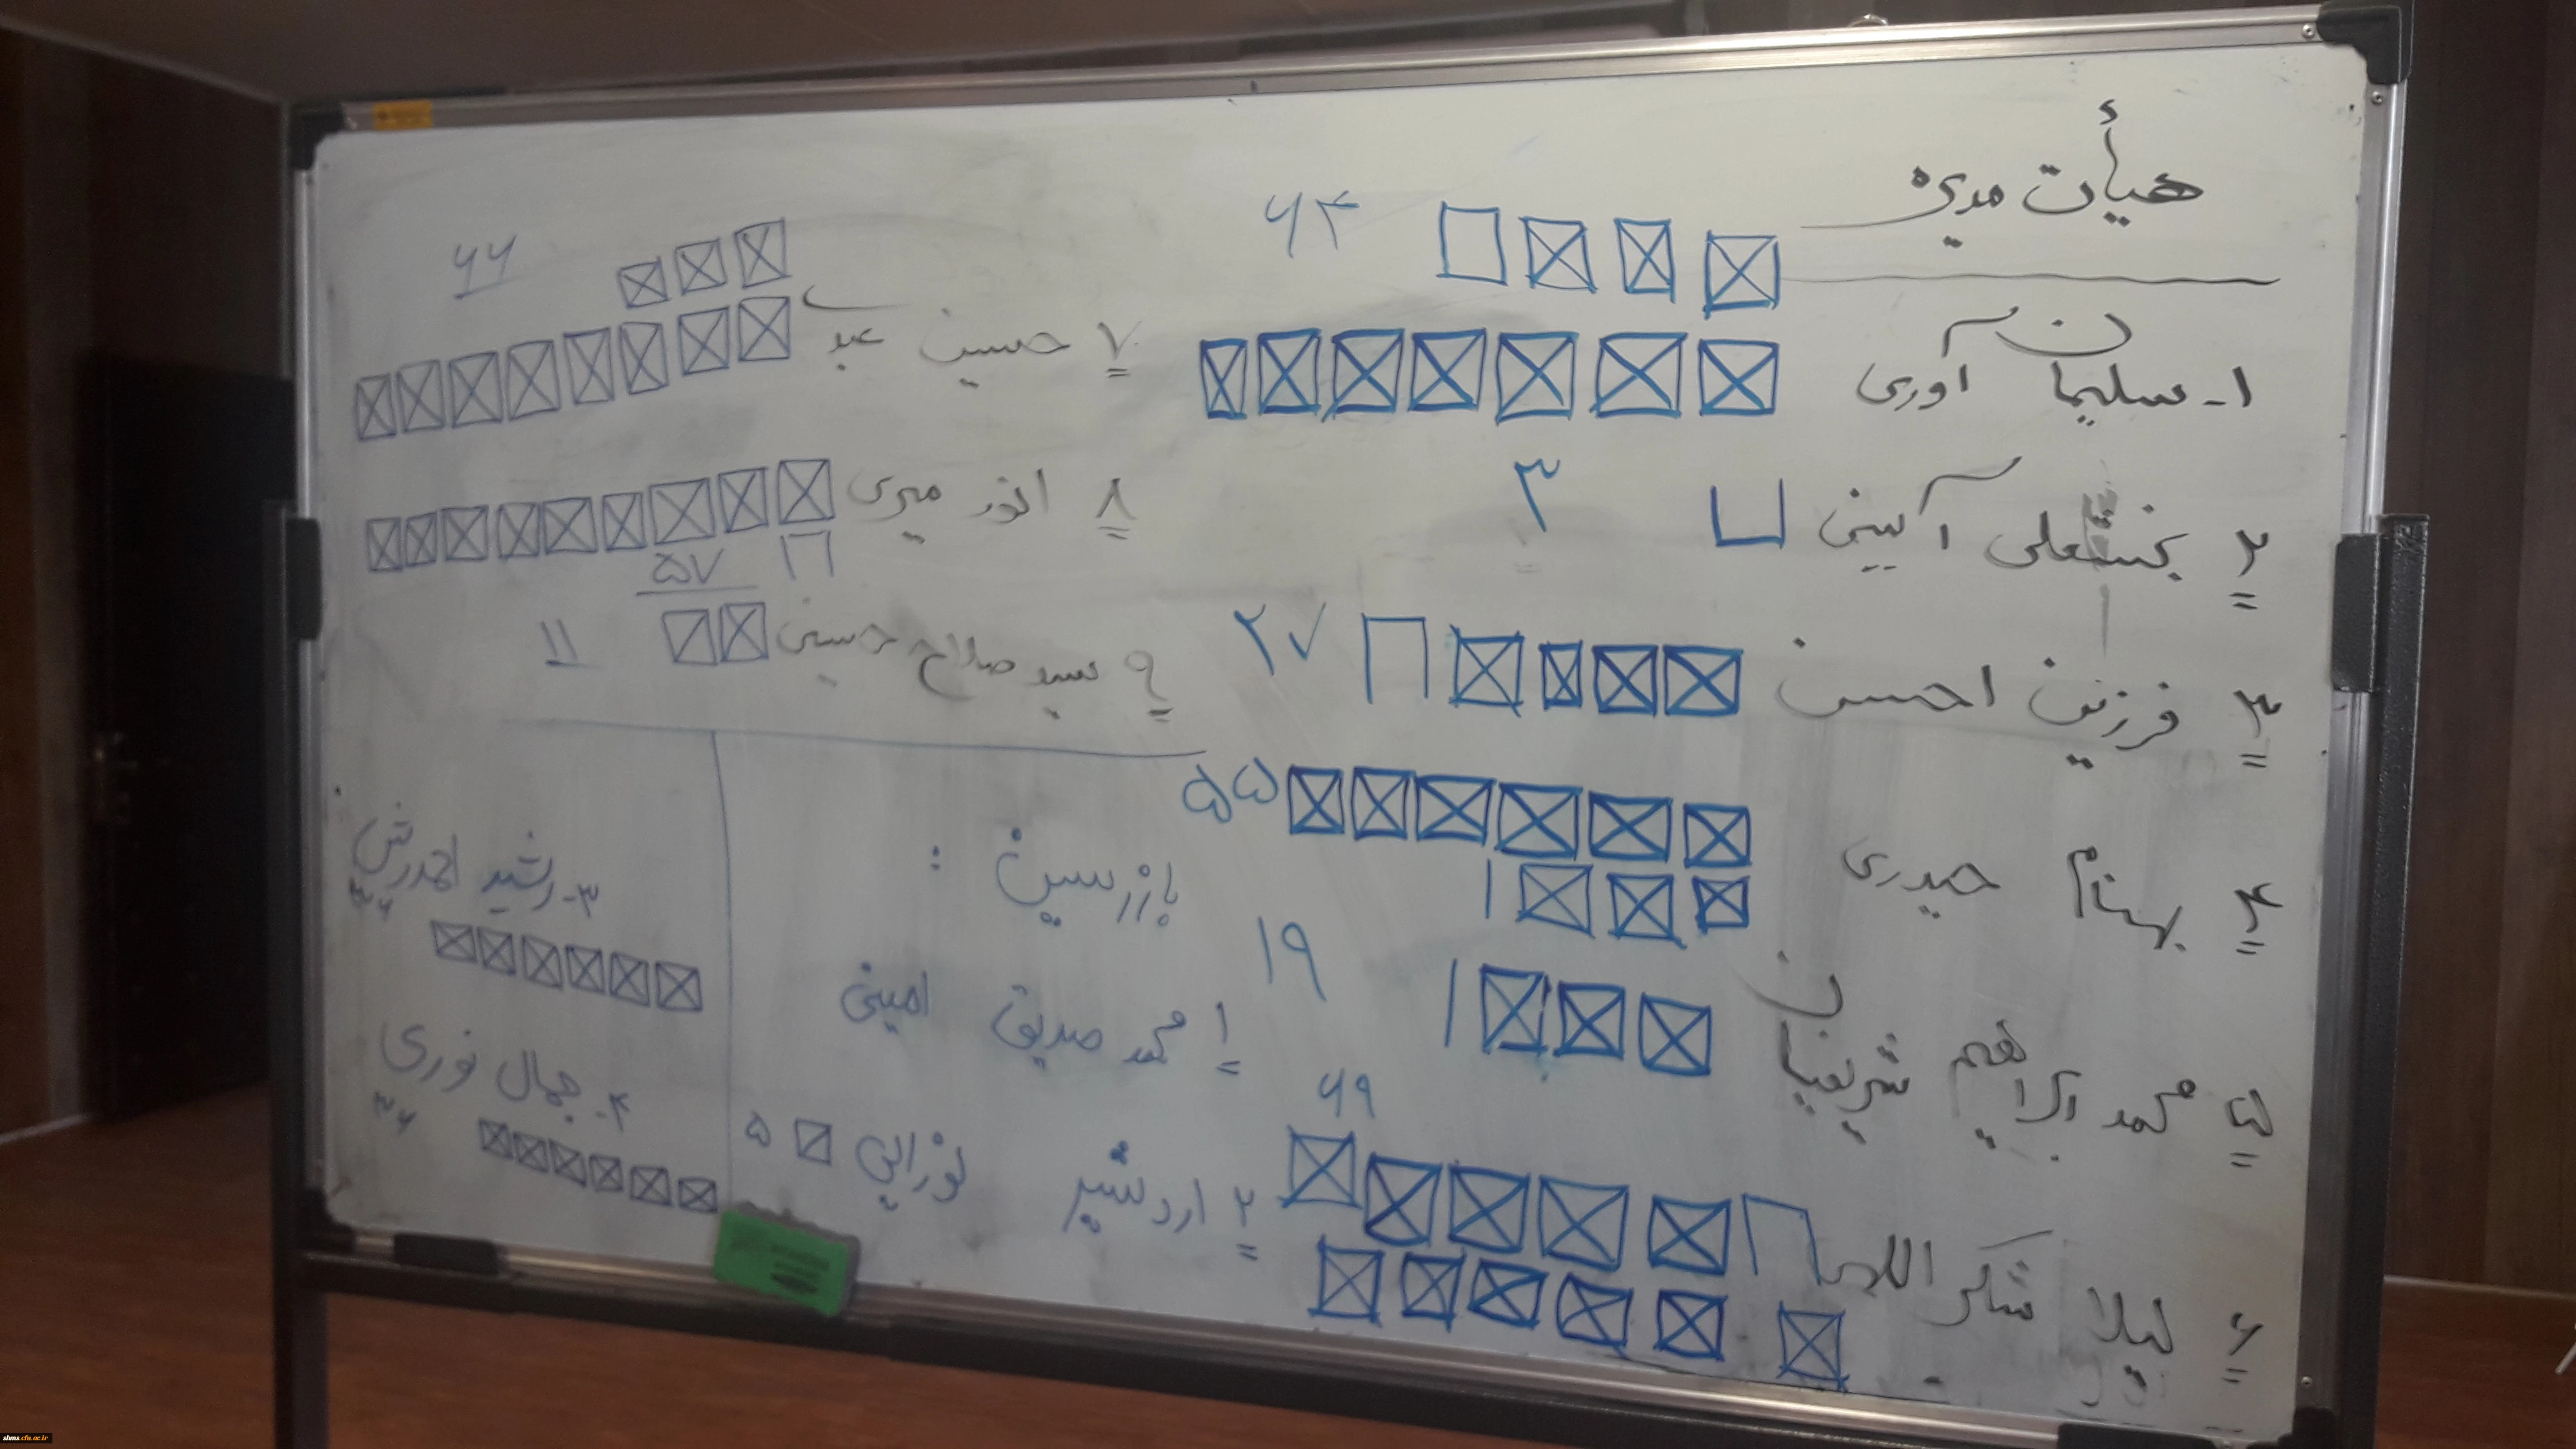 هیأت مدیره
۱- سلیمان آوری ۶۴
۲ بختعلی آیینی ۳
۳ فرزین احسن ۲۷
۴ بهنام حیدری ۵۵
۵ محمد ابراهیم شریفیان ۱۹
۶ لیلا شکراللهی ۶۹
۷ حسین عبد ۶۶
۸ انور میری ۵۷
۹ سید صلاح حسینی ۱۱
بازرسین :
۱ محمد صدیق امینی
۲ اردشیر نورائی ۵
۳- رشید احمدرش ۳۶
۴- جمال نوری ۳۶
shms.cfu.ac.ir